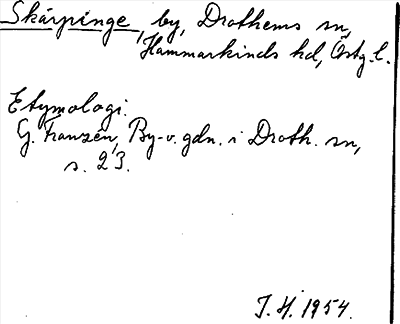 Skärpinge, by, Drothems sn,
Hammarkinds hd, Östg. l.
Etymologi.
G. Franzén, By- o. gdn. i Droth. sn,
s. 23.
J. H. 1954.